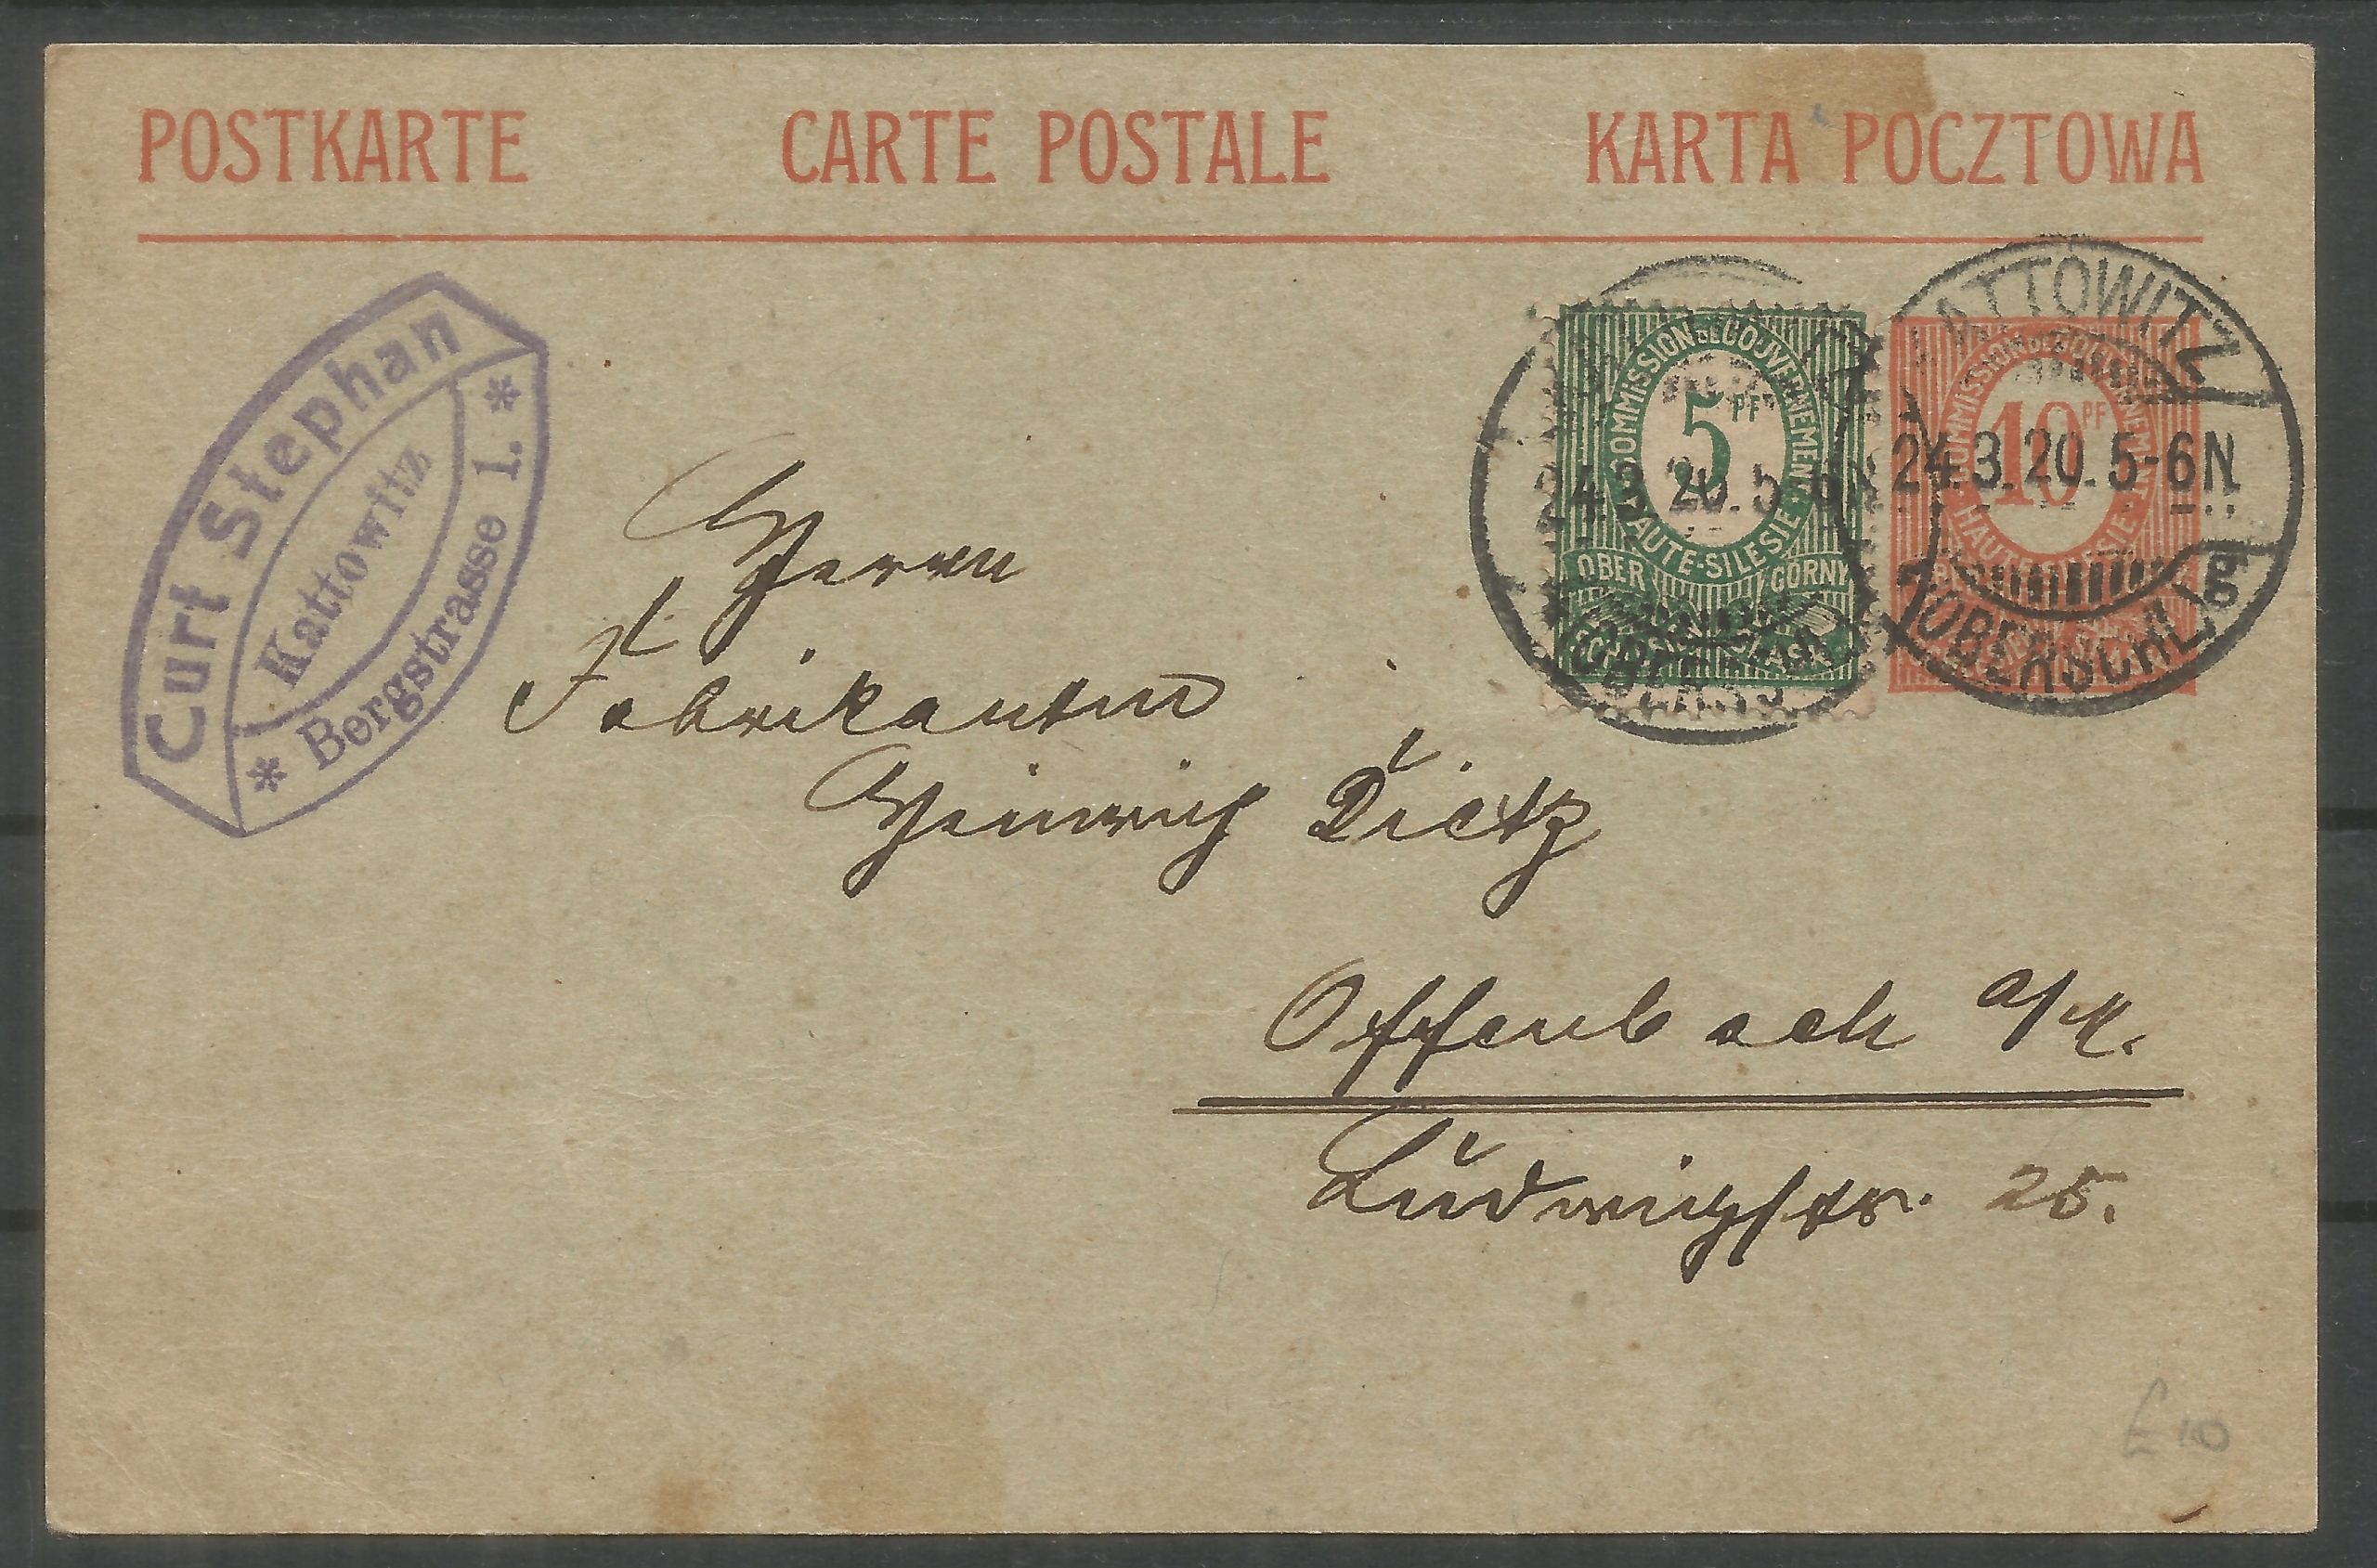 POSTKARTE CARTE POSTALE KARTA POCZTOWA
Curt Stephan
Kattowitz
* Bergstrasse 1. *
COMMISSION DE GOUVERNEMENT
5 PF
HAUTE-SILESIE
OBER GORNY
SCHLESIEN SLASK
COMMISSION DE GOUVERNEMENT
10 PF
HAUTE-SILESIE
24.3.20.5-6N
KATTOWITZ
24.3.20.5-6N
(OBERSCHL) g
Herrn
Fabrikanten
Heinrich Dietz
Offenbach a/M.
Ludwigstr. 25.
£10